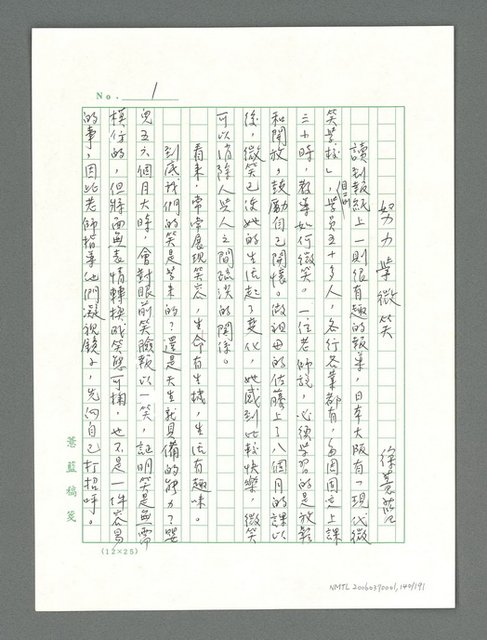 No. 1
努力學微笑
徐薏藍
讀到報紙上一則很有趣的報導,日本大阪有「現代微
笑學校」,學員五十多人,各行各業都有,每周上課
三小時,教導如何微笑。一位老師說,必須學習的是放鬆
和開放,鼓勵自己開懷。做祖母的佐藤上了八個月的課以
後,微笑已使她的生活起了變化,她感到比較快樂,微笑
可以消除人與人之間疏淡的關係。
看來,常常展現笑容,生命有生機,生活有趣味。
到底我們的笑是學來的?還是天生就具備的能力?嬰
兒五六個月大時,會對眼前笑臉報以一笑,証明笑是無需
模仿的,但將面無表情轉換成笑態可掬,也不是一件容易
的事,因此老師指導他們凝視鏡子,先向自己打招呼。
薏藍稿箋
(12×25)
NMTL 20060390001,140/191